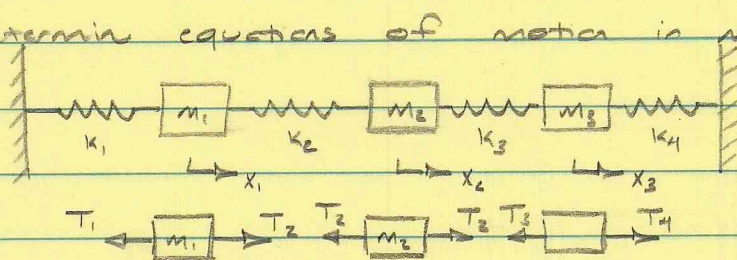 termin equations of motion in
m₁ m₂ m₃
k₁ k₂ k₃ k₄
x₁ x₂ x₃
T₁ T₂ T₂ T₃ T₃ T₄
m₁ m₂